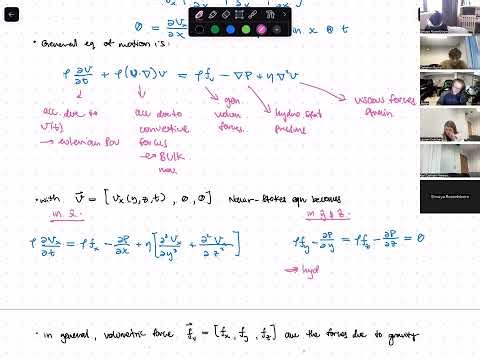 0 = ∂Vx/∂x
on x ⊗ t
• General eq of motion is:
ρ ∂V/∂t + ρ(v·∇)v = ρfv − ∇P + η∇²v
acc. due to V(t) → eulerian POV
acc due to convective forces → BULK mov.
gen. volum forces.
hydrostat pressure
viscous forces
• with V⃗ = [Vx(y,z,t), 0, 0] Navier-Stokes eqn becomes
in x:
in y & z:
ρ ∂Vx/∂t = ρfx − ∂P/∂x + η[∂²Vx/∂y² + ∂²Vx/∂z²]
ρfy − ∂P/∂y = ρfz − ∂P/∂z = 0
→ hyd
• in general, volumetric force f⃗v = [fx, fy, fz] are the forces due to gravity